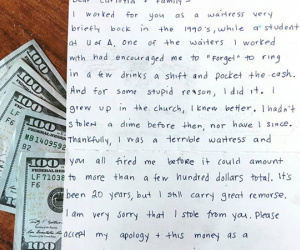 Dear Carlotta + Family -
I worked for you as a waitress very
briefly back in the 1990's, while a student
at U of A, One of the waiters I worked
with had encouraged me to "forget" to ring
in a few drinks a shift and pocket the cash.
And for some stupid reason, I did it. I
grew up in the church, I knew better. I hadn't
stolen a dime before then, nor have I since.
Thankfully, I was a terrible waitress and
you all fired me before it could amount
to more than a few hundred dollars total. It's
been 20 years, but I still carry great remorse.
I am very sorry that I stole from you. Please
accept my apology + this money as a
100
100
LF
F6
100
MB1409592
B2
100
LF7103
F6
100